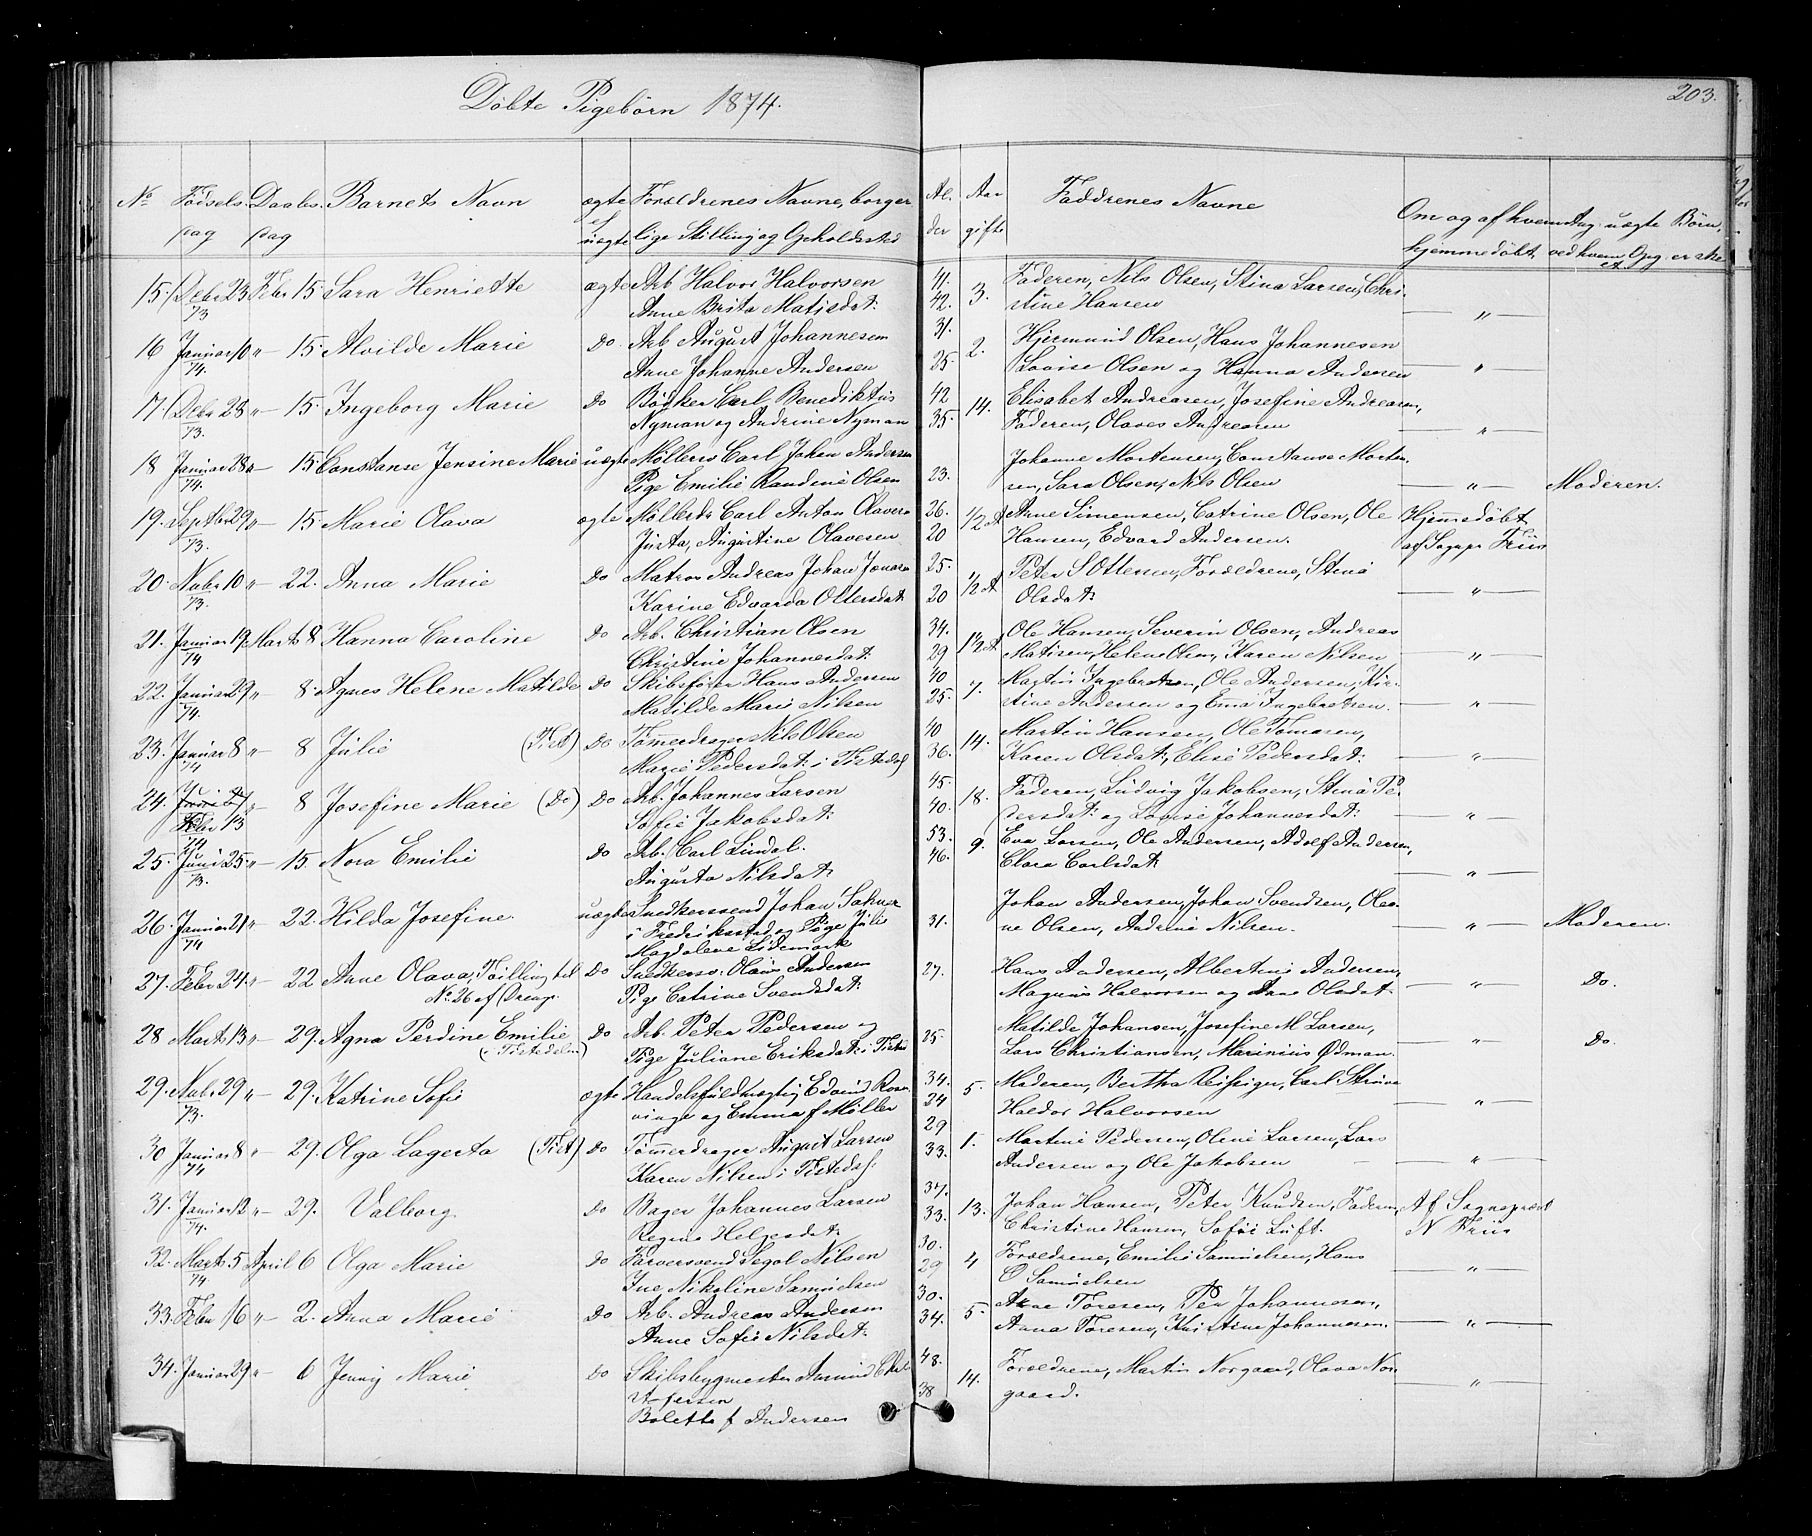 Døbte Pigebørn 1874.
203.
No Fødsels Daabs Barnets Navn ægte Forældrenes Navne, borger Al Aar Faddrenes Navne Om og af hvem Ang: uægte Børn,
dag dag el uægte lige Stilling og Opholdssted der gifte hjemmedøbt ved hvem Opg: er ske
15. Debr 23 Febr 15 Sara Henriette ægte Arb Halvor Halvorsen 41. 3. Faderen, Nils Olsen, Stina Larsen, Chri-
73 Anne Brita Matisdat: 42. stine Hansen — " —
16 Januar 10 " 15. Alvilde Marie Do. Arb August Johannesen 31. 2. Hjermund Olsen, Hans Johannesen
74. Anne Johanne Andersen 25. Lovise Olsen og Hanna Andersen — " —
17. Debr 28 " 15. Ingeborg Marie Do Bødker Carl Benediktus 42 14. Elisabet Andreasen, Josefine Andreasen,
73. Nyman og Andrine Nyman 35. Faderen, Olaves Andreasen — " —
18 Januar 28 " 15 Constanse Jensine Marie uægte Møllers Carl Johan Andersen Johanne Mortensen, Constanse Morten-
74. Pige Emilie Randine Olsen 23. sen, Sara Olsen, Nils Olsen — " — Moderen.
19. Septbr 29 " 15. Marie Olava ægte Møllerdr Carl Anton Olavesen 26. 1/2 A Anne Simensen, Catrine Olsen, Ole Hjemmedøbt
73. Justa, Augustine Olavesen 20 Hansen, Edvard Andersen. af Sognpr Friis
20. Nobr 10 " 22. Anna Marie Do Matros Andreas Johan Jonasen 25. 1/2 A Peter S Ottersen, Forældrene, Stina
73. Karine Edvarda Ottersdat: 20 Olsdat: — " —
21. Januar 19 Marts 8 Hanna Caroline Do Arb. Christian Olsen 34. 1 1/2 A Ole Hansen, Severin Olsen, Andreas
74 Christine Johannesdat: 29 Matisen, Helene Olsen, Karen Nilsen "
22. Januar 29 " 8 Agnes Helene Matilde Do Skibsfører Hans Andersen 40 7. Martin Ingebretsen, Ole Andersen, Kir-
74. Matilde Marie Nilsen 25. stine Andersen og Ema Ingebretsen. — " —
23. Januar 8 " 8 Julie (Tist) Do Tømmerdrager Nils Olsen 40 14. Martin Hansen, Ole Tomasen,
74 Marie Pedersdat: i Tistedal 36. Karen Olsdat:, Elise Pedersdat: — " —
24. Febr 13 " 8 Josefine Marie (Do) Do Arb. Johannes Larsen 45. 18. Faderen, Ludvig Jakobsen, Stina Pe-
74 Sofie Jakobsdat: 40. dersdat: og Lovise Johannesdat: — " —
25. Juni 25. " 15 Nora Emilie Do Arb. Carl Lindal. 53. 9. Eva Larsen, Ole Andersen, Adolf Andersen,
73. Augusta Nilsdat: 46. Clara Carlsdat: — " —
26. Januar 21 " 22. Hilda Josefine. uægte Snedkersvend Johan Johan Andersen, Johan Svendsen, Ole-
74 i Fredriksstad og Pige Julie 31. ne Olsen, Andrine Nilsen. — " — Moderen.
Magdalene Lidemark
27. Febr 24. " 22 Anne Olava, Tvilling til Do Snedkersv. Olaus Andersen 27. Hans Andersen, Albertine Andersen,
No 26 af Drenge. Pige Catrine Svendsdat: Magnus Halvorsen og Ane Olsdat. — " — Do.
28 Marts 13 " 29. Agna Perdine Emilie Do Arb. Peter Pedersen og 25. Matilde Johansen, Josefine M Larsen,
(Tistedalen) Pige Juliane Eriksdat: i Tisted Lars Christiansen, Marinius Ødman. — " — Do.
29. Nobr 29 " 29. Katrine Sofie ægte Handelsfuldmægtig Edvind Rosen- 34. 5. Moderen, Bertha Reissiger, Carl Strøm
73. vinge og Emma f Møller 24 Haldor Halvorsen — " —
30 Januar 8 " 29. Olga Lagerta (Tist) Do Tømmerdrager August Larsen 29 1. Martine Pedersen, Oline Larsen, Lars
74 Karen Nilsen i Tistedal. 33. Andersen og Ole Jakobsen — " —
31. Januar 12 " 29. Valborg Do Bager Johannes Larsen 37. 13. Johan Hansen, Peter Knudsen, Faderen, Af Sognepræst
74. Regine Helgesdat: 33. Christine Hansen, Sofie Luft. N Friis
32. Marts 5 April 6 Olga Marie Do Farversvend Segol Nilsen 30. 4 Forældrene, Emilie Samuelsen, Hans
74 Ine Nikoline Samuelsen 29 O Samuelsen — " —
33. Febr 16 " 2. Anna Marie Do Arb. Andreas Andersen 30. 5. Anne Toresen, Per Johannesen,
Anne Sofie Nilsdat: 34. Anna Toresen, Kristine Johannesen. — " —
34. Januar 29 " 6 Jenny Marie Do Skibsbygmester Aamund 48. 14. Forældrene, Martin Norgaard, Olava Nor-
Bolette f Andersen 38 gaard. — " —